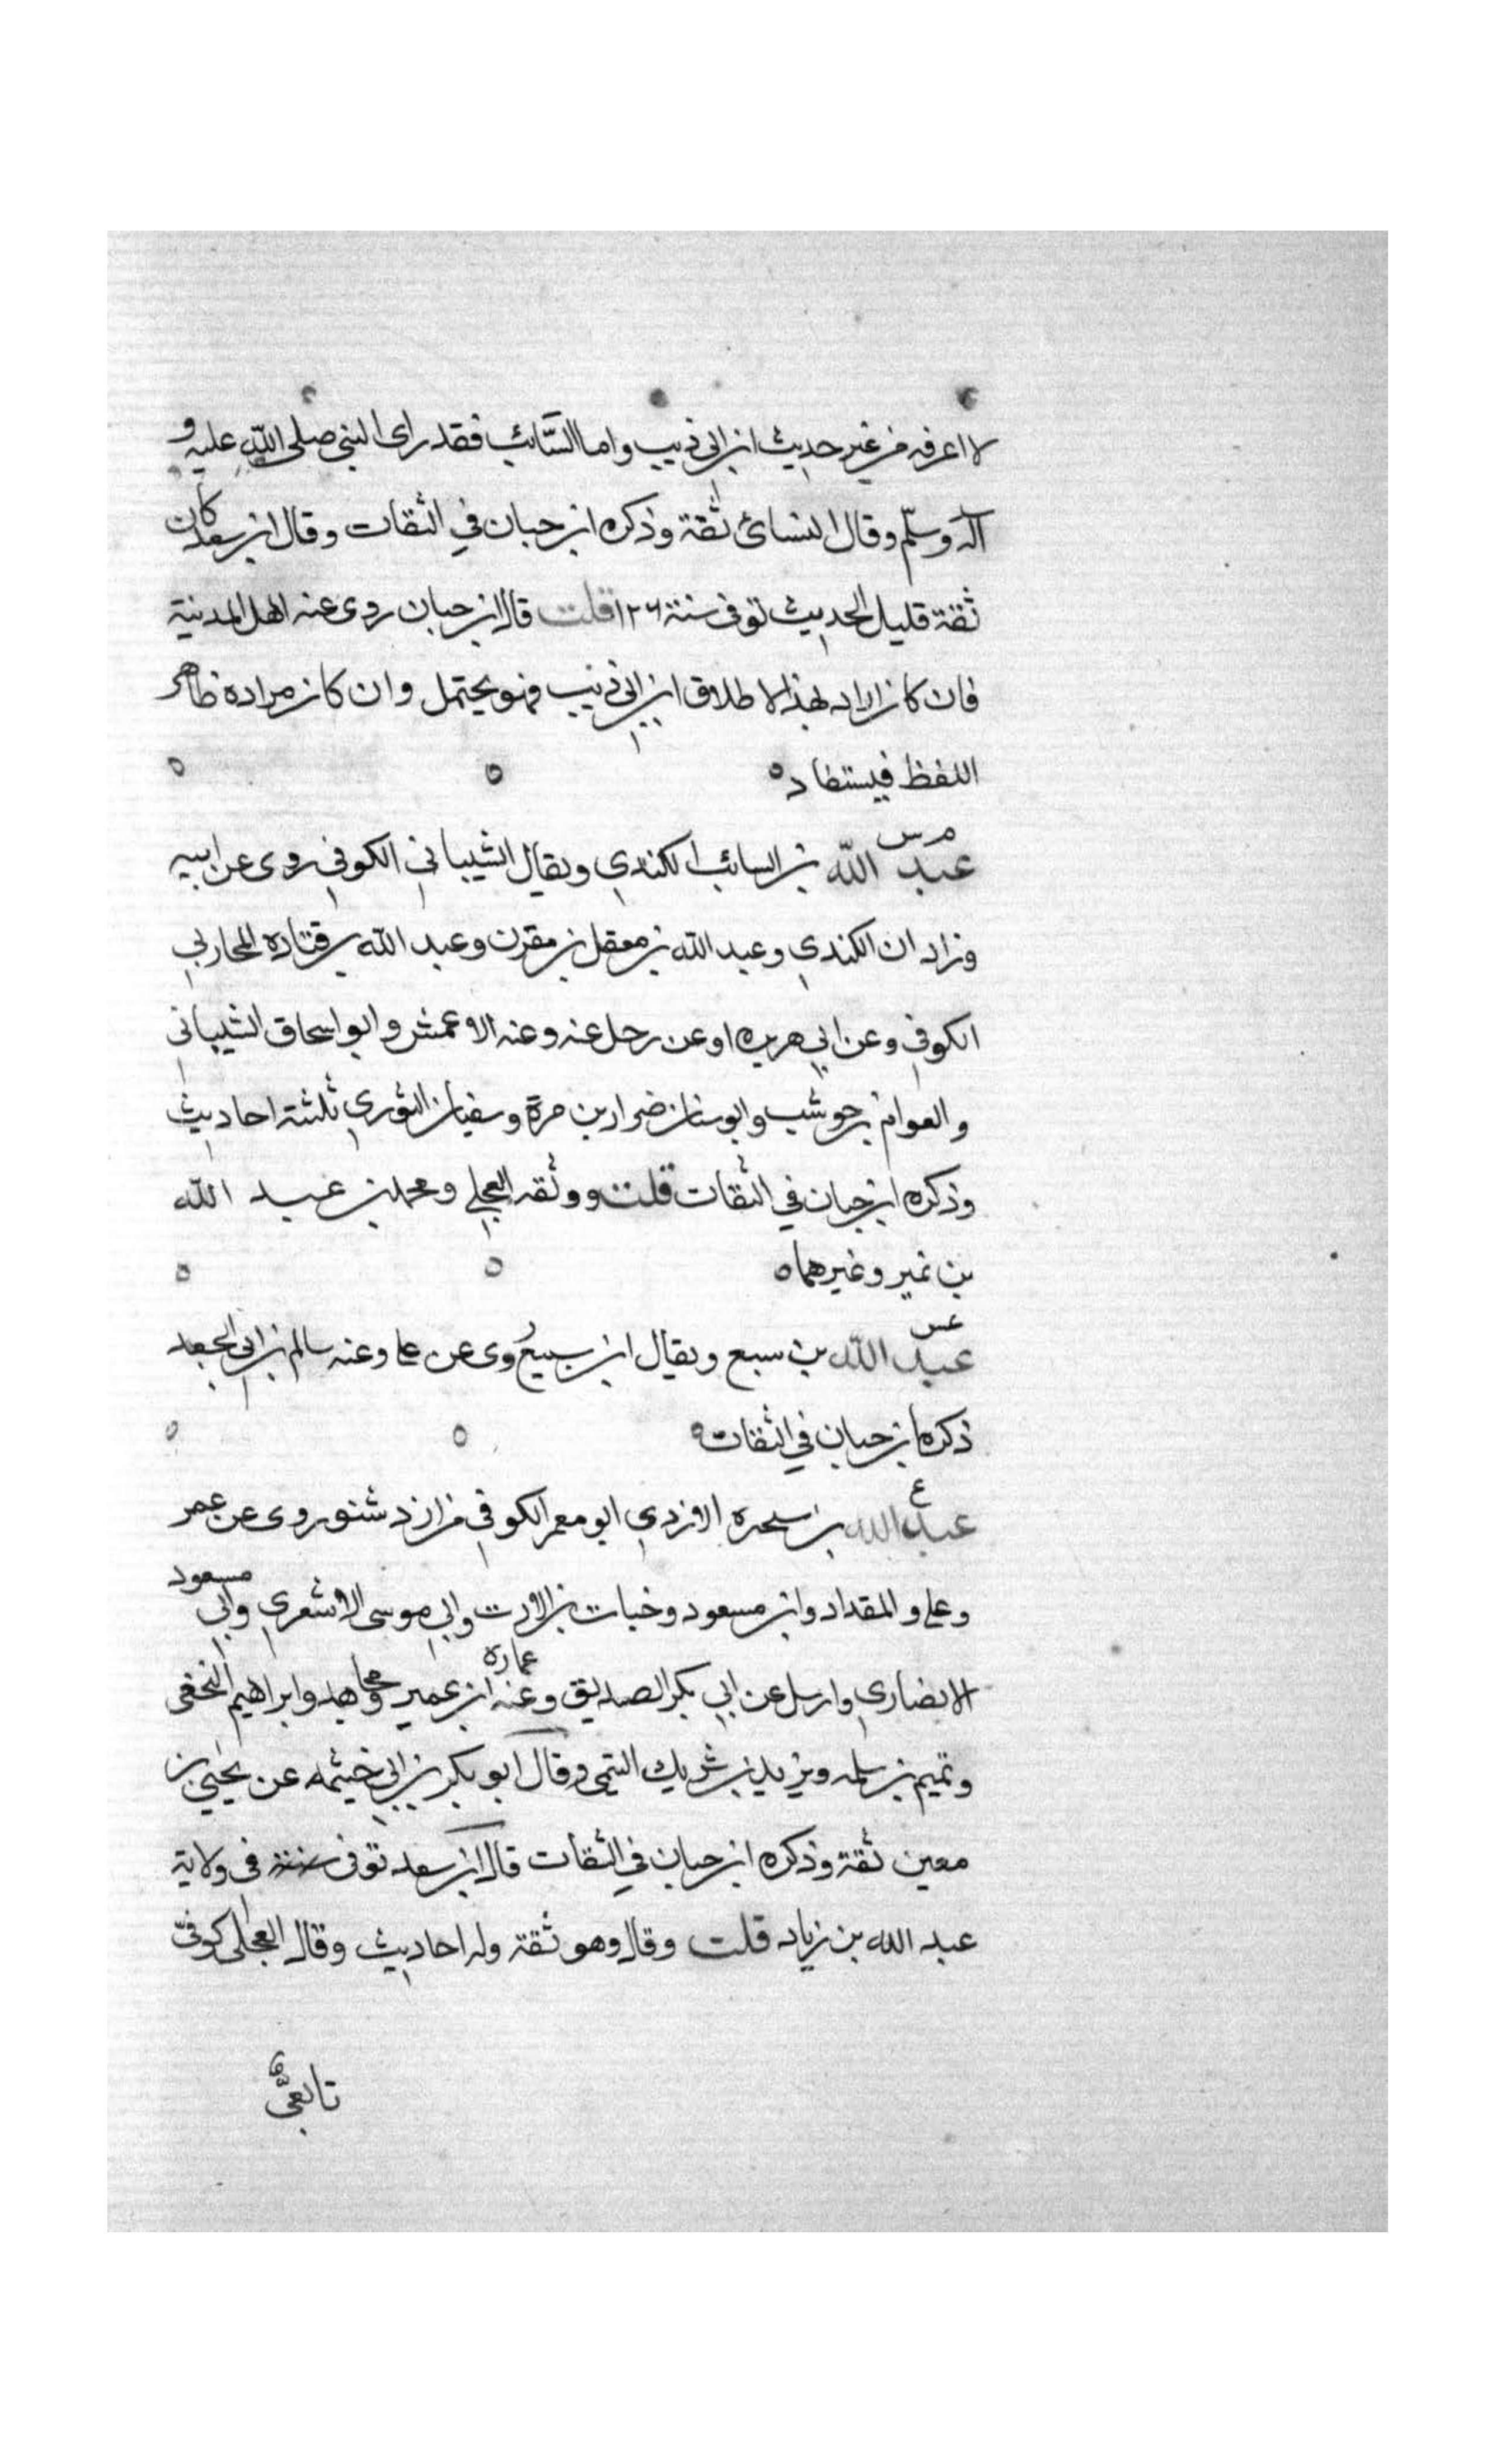 لا اعرفه من غير حديث ابن ابي ذيب واما السائب فقد راى النبي صلى الله عليه و
آله وسلم وقال النسائ ثقة وذكره ابن حبان في الثقات وقال ابن سعد كان
ثقة قليل الحديث توفى سنة ١٢٦ قلت قال ابن حبان روى عنه اهل المدينة
فان كان اراد بهذا الاطلاق ابن ابي ذيب فهو يحتمل وان كان مراده ظاهر
اللفظ فيستفاد ٥ ٥ ٥
م س
عبد الله بن السائب الكندي ويقال الشيباني الكوفي روى عن ابيه
وزادان الكندي وعبد الله بن معقل بن مقرن وعبد الله بن قتاده المحاربي
الكوفي وعن ابي هريره او عن رجل عنه وعنه الاعمش وابو اسحاق الشيباني
والعوام بن حوشب وابو سنان ضرار بن مرة وسفيان الثوري ثلثة احاديث
وذكره ابن حبان في الثقات قلت ووثقه العجلي ومحمد بن عبد الله
بن نمير وغيرهما ٥ ٥ ٥
عس
عبد الله بن سبع ويقال ابن سبيع روى عن على وعنه سالم بن ابي الجعد
ذكره ابن حبان في الثقات ٥ ٥ ٥
ع
عبد الله بن سخبره الازدي ابو معمر الكوفي من ازد شنو روى عن عمر
وعلى والمقداد وابن مسعود وخباب بن الارت وابي موسى الاشعري وابي مسعود
الانصاري وارسل عن ابي بكر الصديق وعنه عمارة ابن عمير ومجاهد وابراهيم النخعى
وتميم بن سلمه ويزيد بن شريك التيمى وقال ابو بكر بن ابي خيثمه عن يحيى بن
معين ثقة وذكره ابن حبان في الثقات قال ابن سعد توفى في ولاية
عبد الله بن زياد قلت وقال وهو ثقة وله احاديث وقال العجلى كوفيّ
تابعيّ